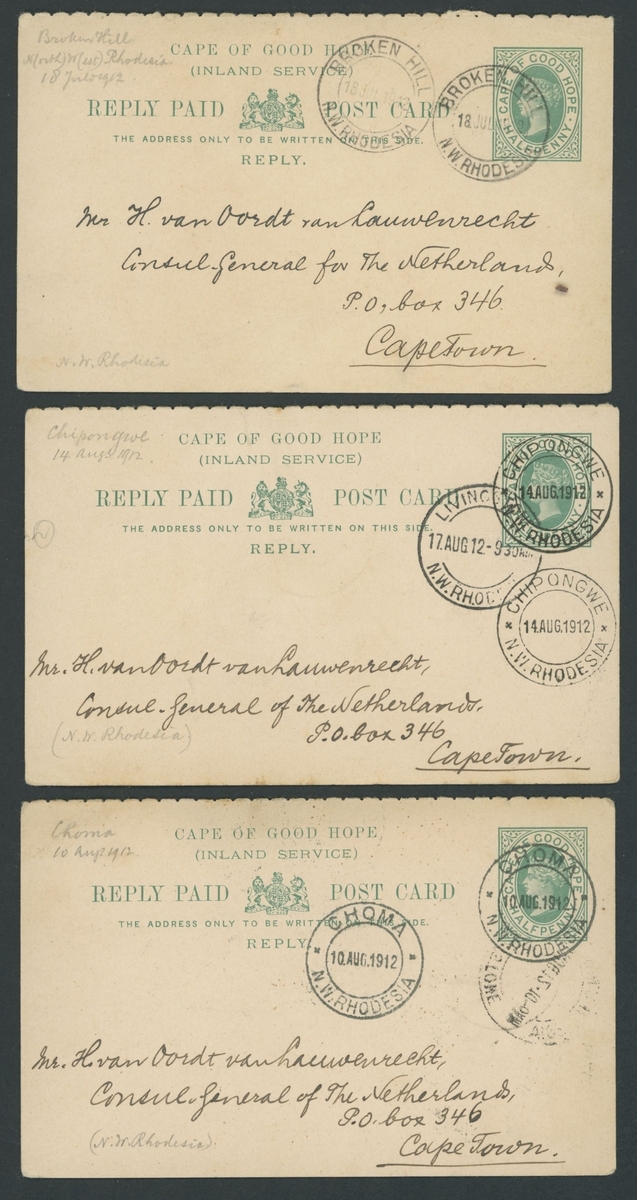 Broken Hill
N(orth)W(est) Rhodesia
18 July 1912
CAPE OF GOOD HOPE
(INLAND SERVICE)
REPLY PAID POST CARD
THE ADDRESS ONLY TO BE WRITTEN ON THIS SIDE.
REPLY.
BROKEN HILL
18 JUL
N.W.RHODESIA
BROKEN HILL
18 JUL
N.W.RHODESIA
CAPE OF GOOD HOPE
HALFPENNY
Mr H. van Oordt van Lauwenrecht
Consul-General for The Netherlands,
P.O. box 346
CapeTown.
N.W. Rhodesia
Chipongwe
14 Aug 1912
CAPE OF GOOD HOPE
(INLAND SERVICE)
REPLY PAID POST CARD
THE ADDRESS ONLY TO BE WRITTEN ON THIS SIDE.
REPLY.
CHIPONGWE
14.AUG.1912
N.W.RHODESIA
17.AUG.12-9 30AM
CHIPONGWE
14.AUG.1912
N.W.RHODESIA
Mr. H. van Oordt van Lauwenrecht,
Consul-General of The Netherlands.
(N.W. Rhodesia)
P.O. box 346
CapeTown.
Choma
10 Aug 1912
CAPE OF GOOD HOPE
(INLAND SERVICE)
REPLY PAID POST CARD
THE ADDRESS ONLY TO BE WRITTEN ON THIS SIDE.
REPLY.
CHOMA
10.AUG.1912
N.W.RHODESIA
CHOMA
10.AUG.1912
N.W.RHODESIA
HALFPENNY
Mr. H. van Oordt van Lauwenrecht,
Consul-General of The Netherlands,
P.O. box 346
(N.W. Rhodesia)
CapeTown.